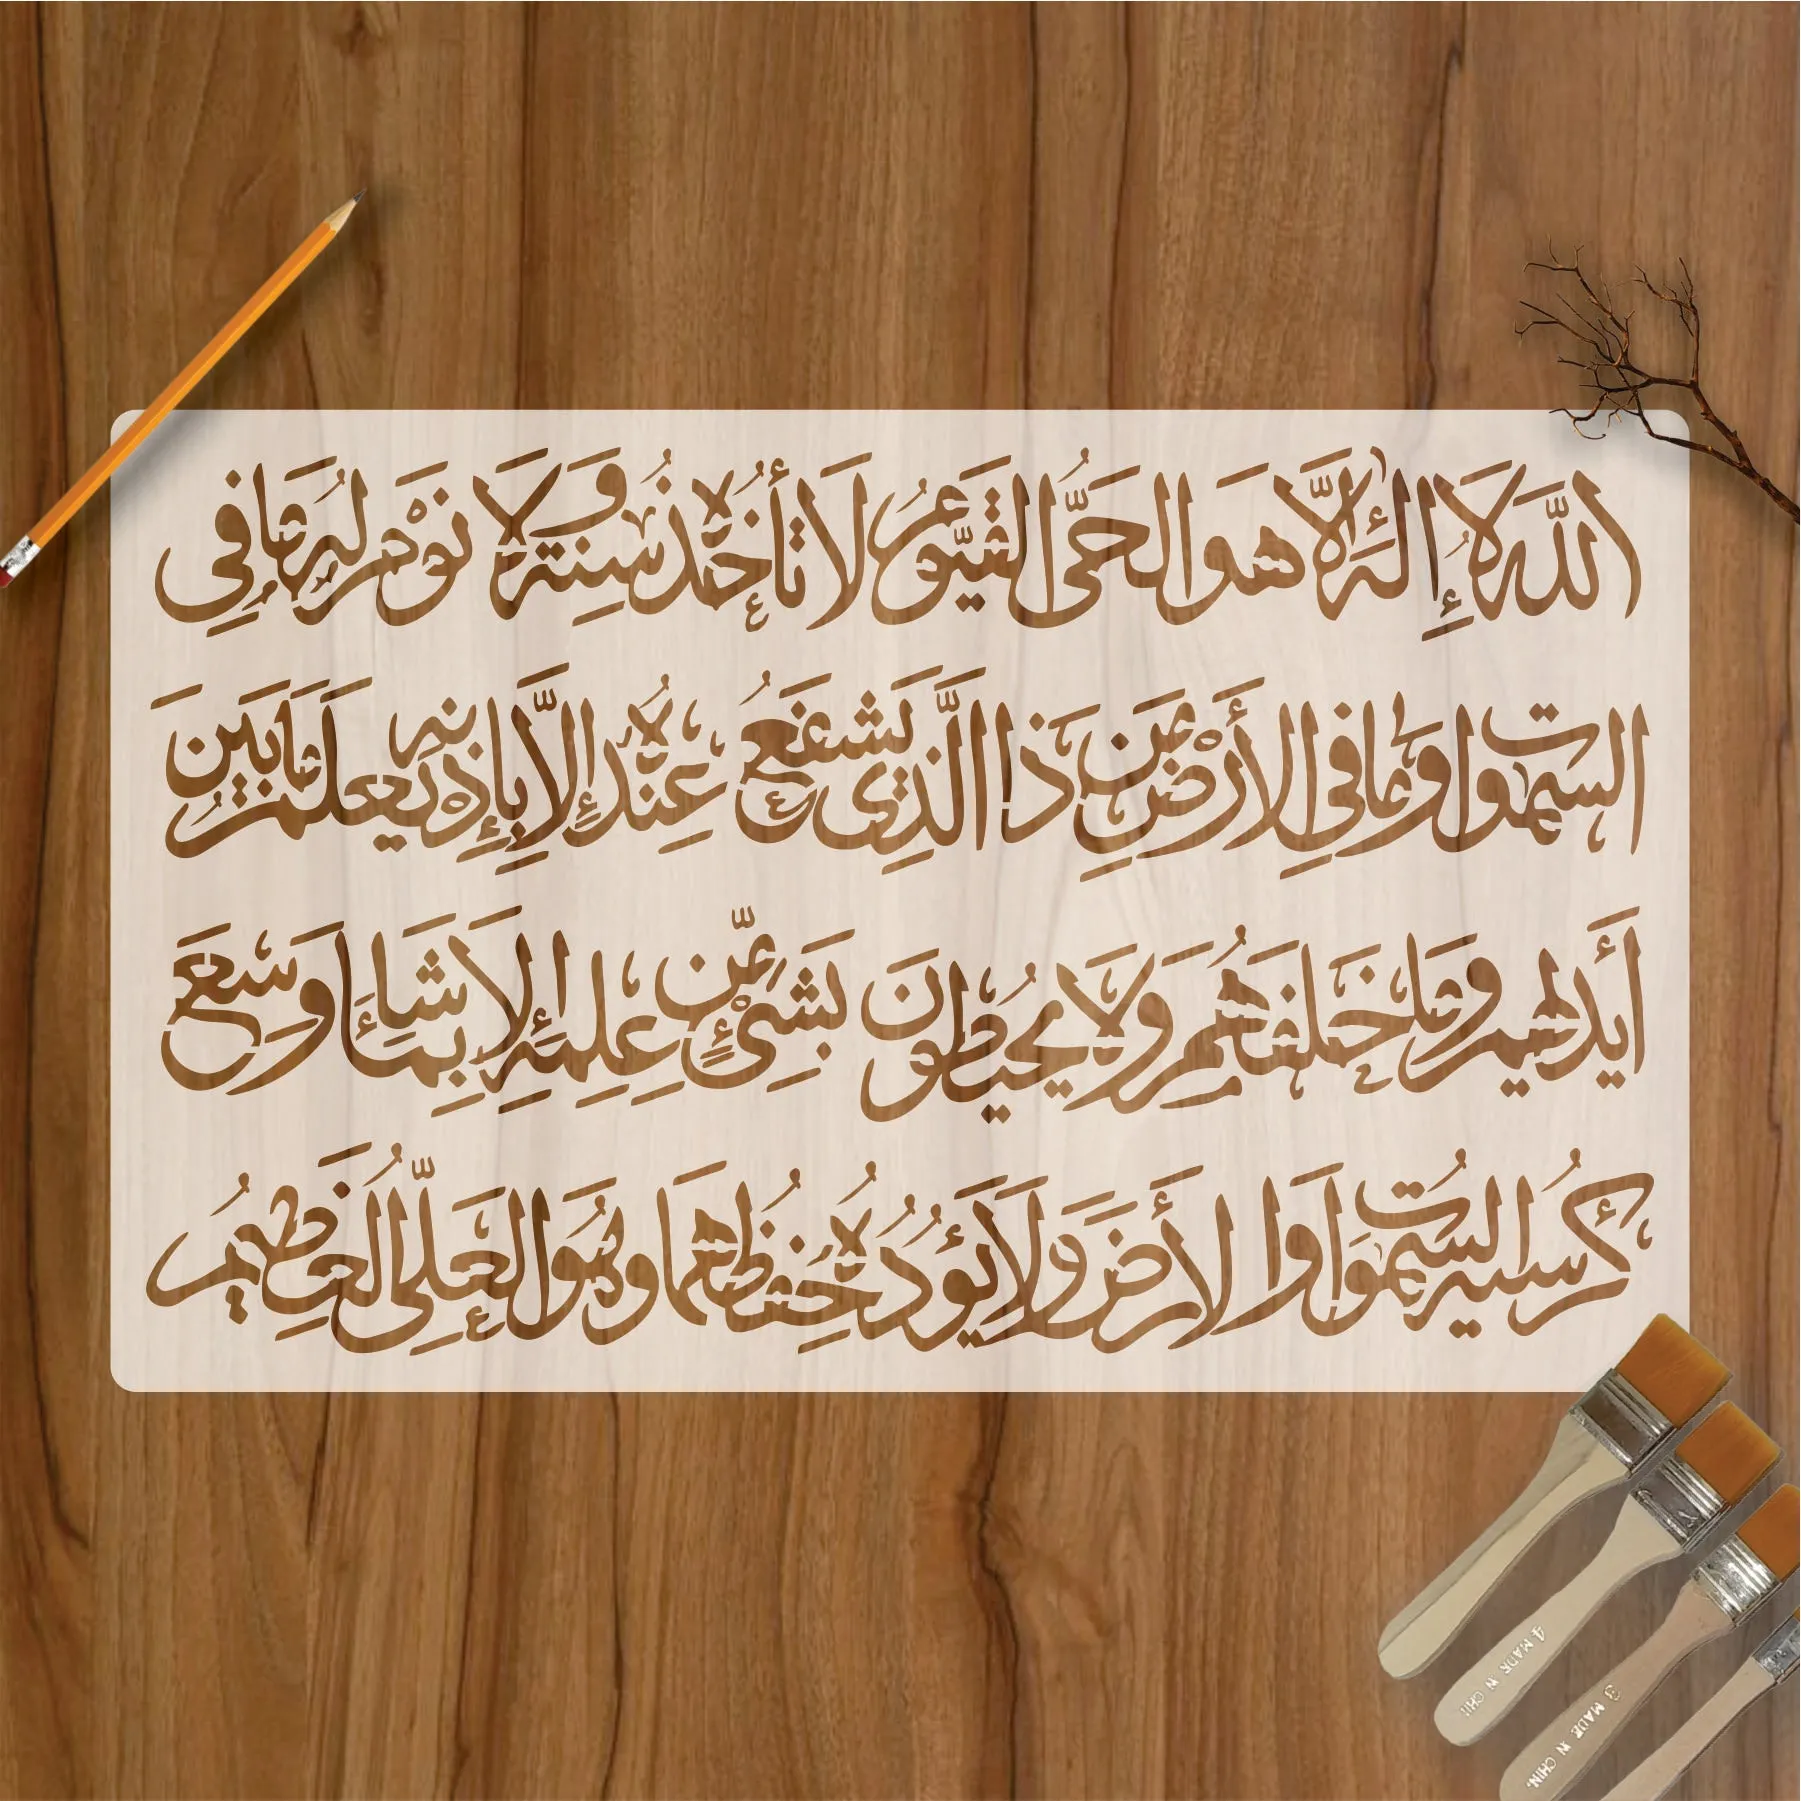 الله لا إله إلا هو الحى القيوم لا تأخذه سنة ولا نوم له ما في
السموات وما في الأرض من ذا الذي يشفع عنده إلا بإذنه يعلم ما بين
أيديهم وما خلفهم ولا يحيطون بشىء من علمه إلا بما شاء وسع
كرسيه السموات والأرض ولا يؤده حفظهما وهو العلى العظيم
4 MADE IN CHI
3 MADE IN CHIN.